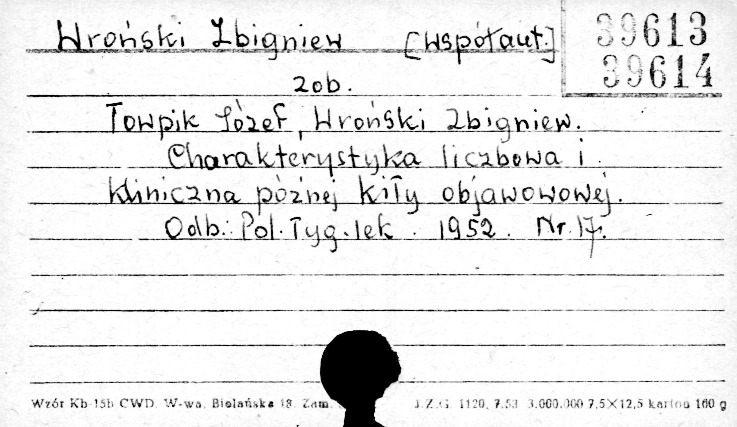 Wroński Zbigniew [współaut.]
39613
39614
zob.
Towpik Józef, Wroński Zbigniew.
Charakterystyka liczbowa i
kliniczna późnej kiły objawowowej.
Odb. Pol. Tyg. lek. 1952. Nr. 17.
Wzór Kb-15b CWD. W-wa, Bielańska 18. Zam. J.Z.G. 1120, 7.53 3.000.000 7,5×12,5 karton 160 g